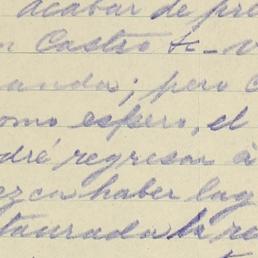 acabar de pre
n Castro te - v
anda; pero c
omo espero, el
dré regresar á
ezca haber lug
taurada la re